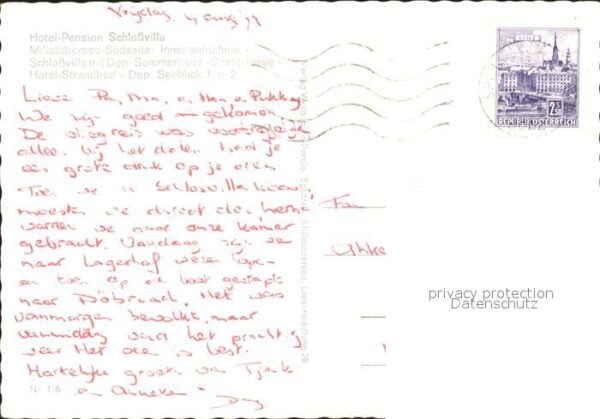 Vrijdag 4 aug '72
Hotel-Pension Schloßvilla
Millstättersee-Südseite: Innenaufnahme -
Schloßvilla mit Dep. Sommerhaus - Seeterrasse -
Hotel-Strandbad - Dep. Seeblick 1 u. 2
Lieve Pa, Ma,
We zijn goed aangekomen.
De vliegreis was
alleen bij het dalen had je
een grote druk op je oren
Toen we in Schlossvilla kwamen,
moesten we direct eten, hierna
werden we naar onze kamer
gebracht. Vandaag zijn we
naar Lagerhof wezen
en toen op de boot gestapt
naar Döbriach. Het was
vanmorgen bewolkt, maar
vanmiddag werd het prachtig
weer. Het eten is best.
Hartelijke groeten van Tjerk
en Anneke
Dag
Nr. 116
Fam
REPUBLIK ÖSTERREICH
2.50
LINZ
privacy protection
Datenschutz